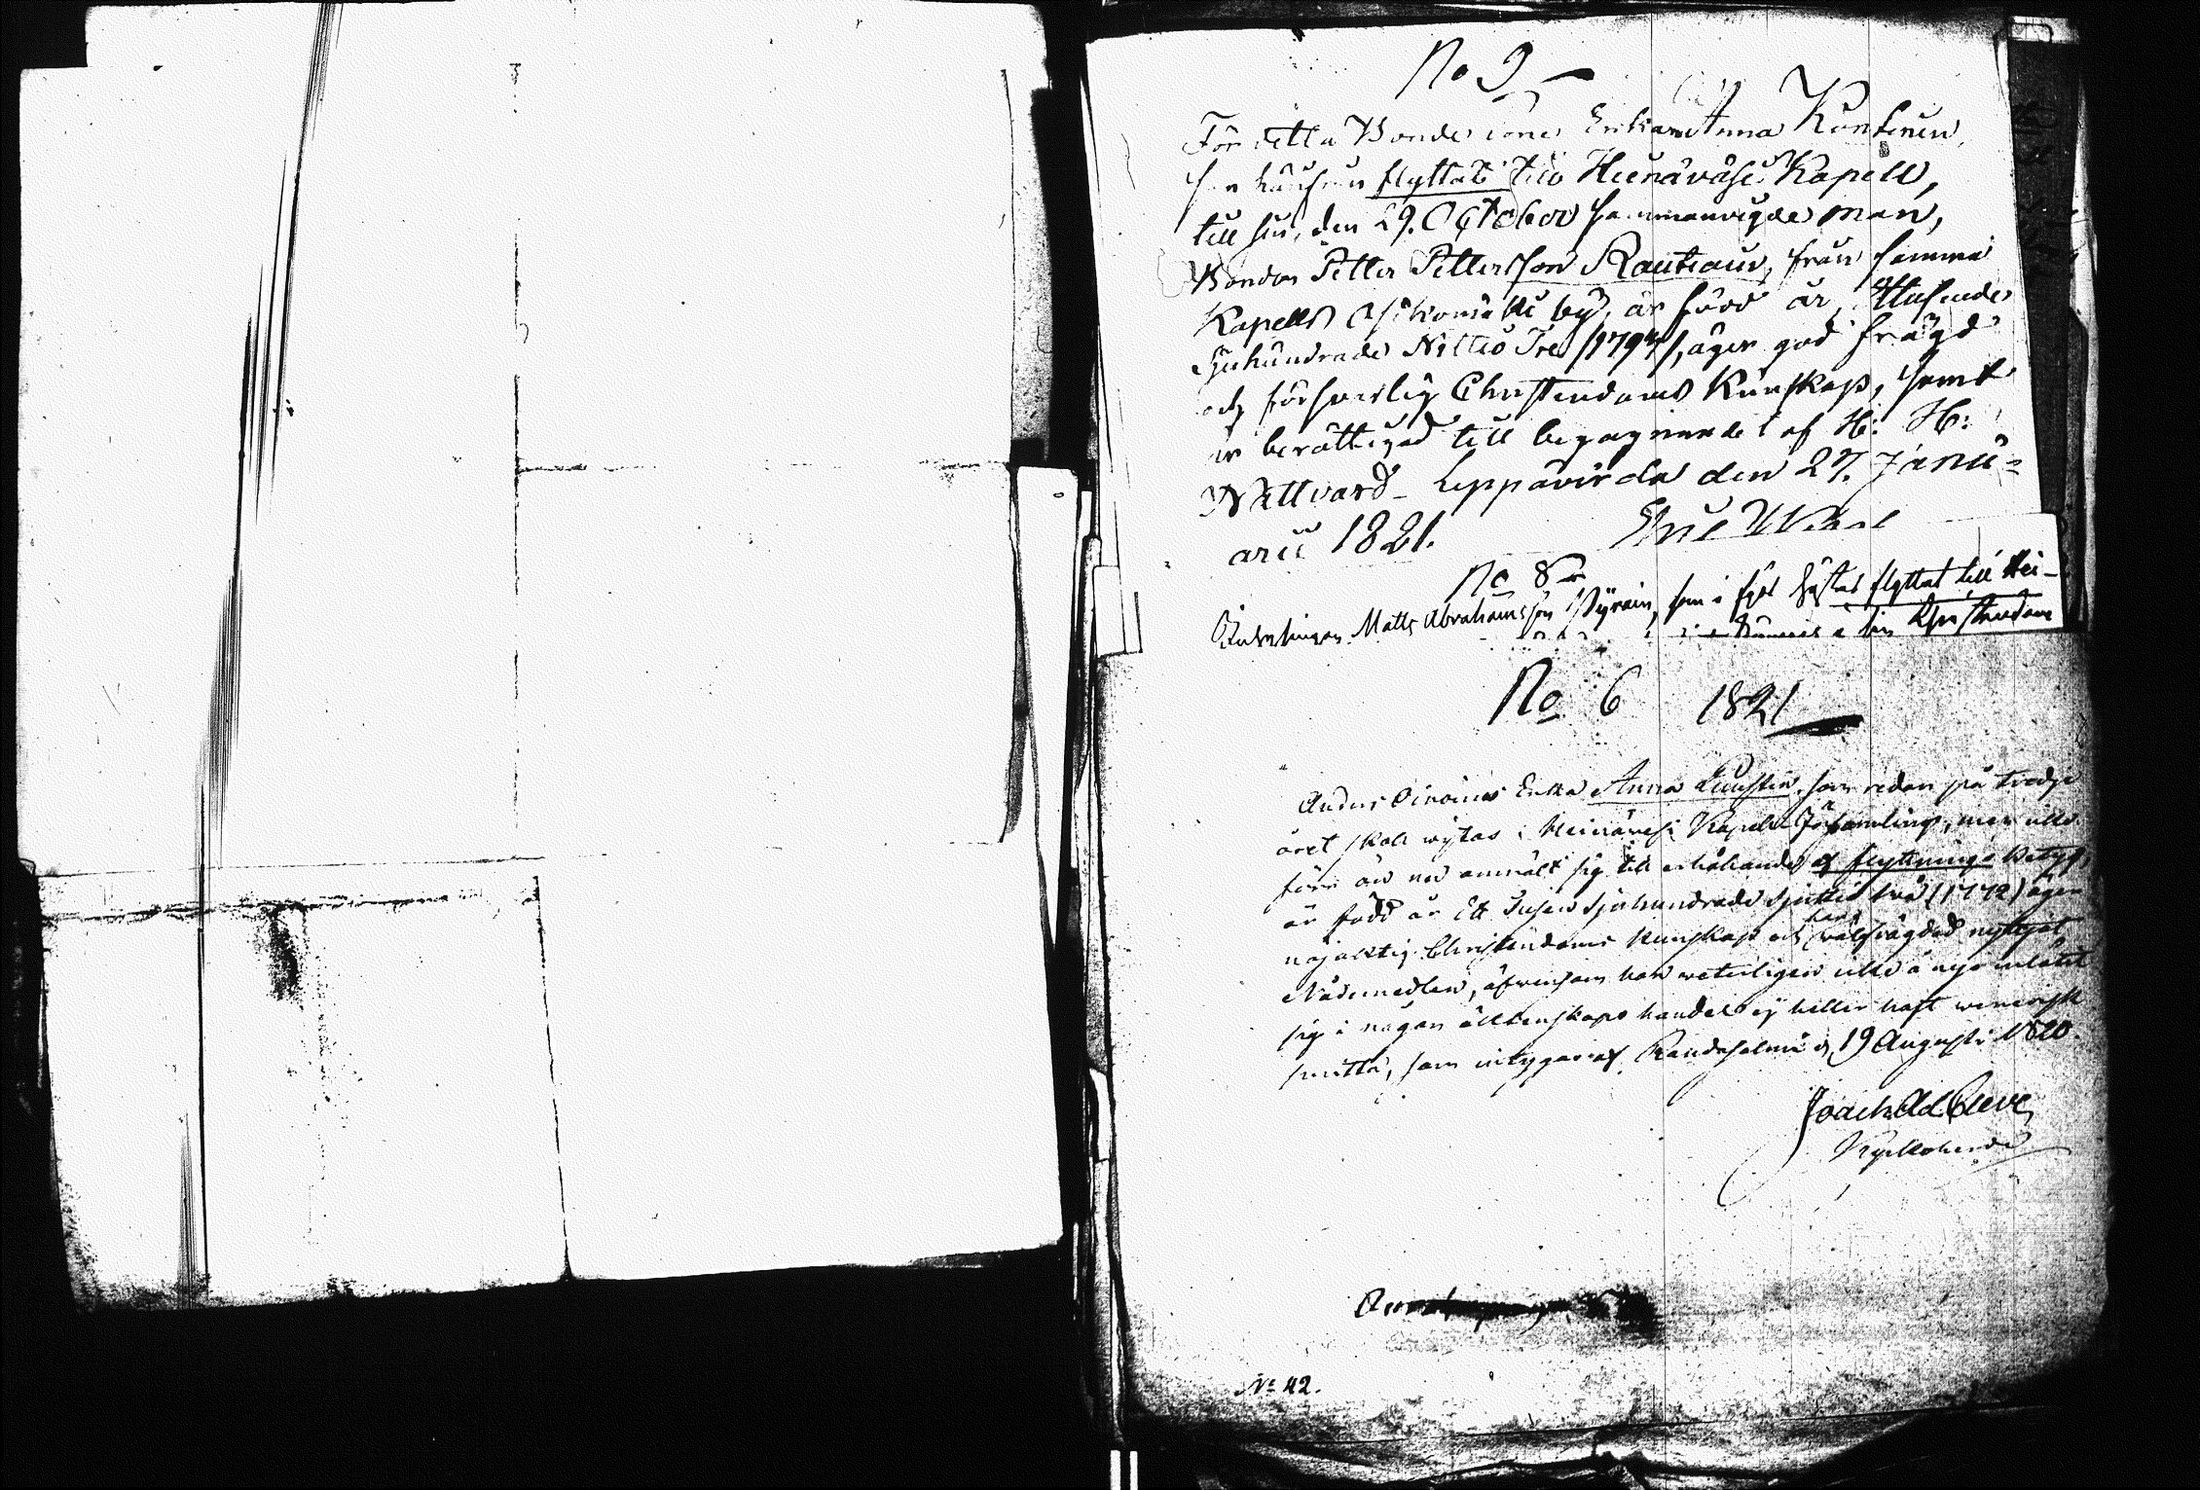 No 9
För detta Bonde Enkan Anna Kontinen,
flyttat till Heinävesi Kapell,
till sin, den 29. October sammanvigde man,
Bonden Petter Pettersson Rautiain, från samma
Kapells by, är född år Ettusende
Sjuhundrade Nittio Tre /1793/, äger god frägd
och försvarlig Christendoms Kunskap, samt
är berättigad till begagnandet af H: H:
Nattvard – Leppävirda den 27. Janu=
arii 1821.
No 8
Matts Abrahamsson, som i fjol höstas flyttat till Hei-
sin Christendom
No 6 1821
Anders Enka Anna, som redan på tredje
året skall wistas i Heinävesi Kapells Församling, men icke
förr än nu anmält sig till erhållande af flyttnings Betyg,
är född år Ett Tusen Sjuhundrade Sjuttio två (1772) äger
nöjaktig Christendoms Kunskap och wälfrägdad nyttjat
Nådemedlen, äfwensom har weterligen icke å nyo inlåtit
sig i någon äktenskaps handel ej heller haft venerisk
smitta, som intygar af Randasalmi d. 19 Augusti 1820.
Joach Ad Cleve
Kyrkoherde
No 42.